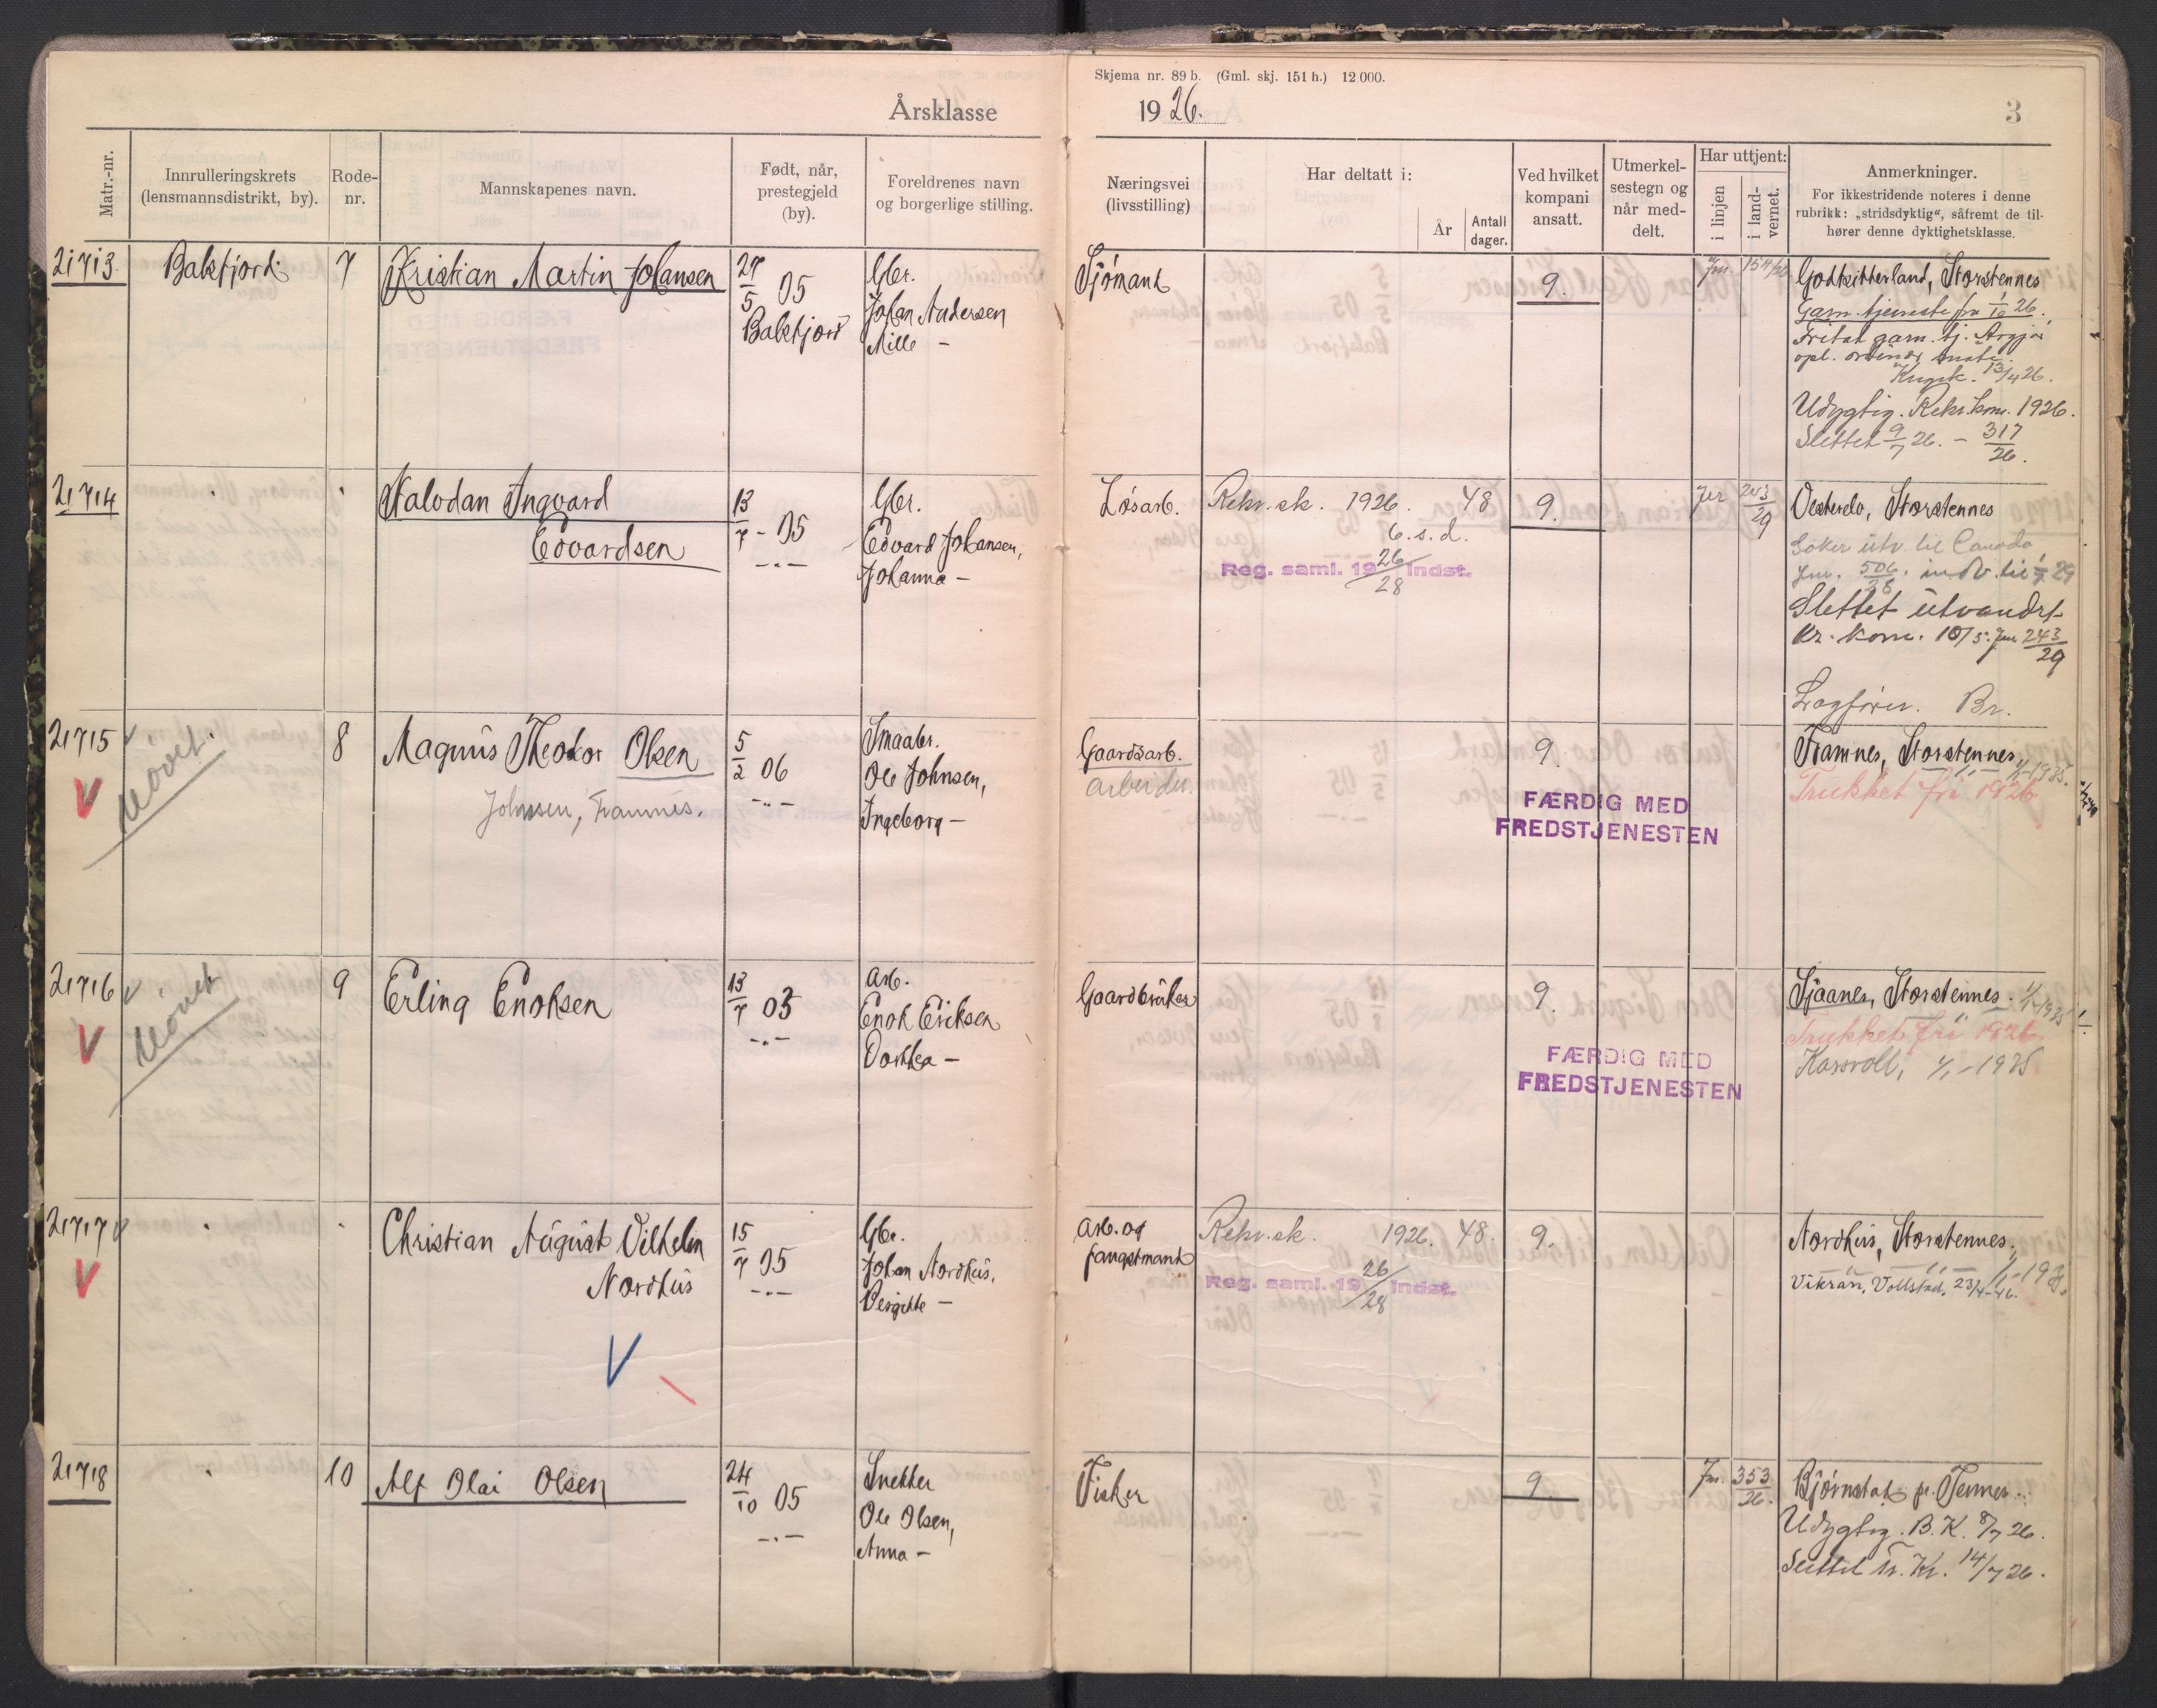 Skjema nr. 89 b. (Gml. skj. 151 h.) 12 000.
Årsklasse 1926.
3
Matr.-nr.
Innrulleringskrets
(lensmannsdistrikt, by).
Rode-
nr.
Mannskapenes navn.
Født, når,
prestegjeld
(by).
Foreldrenes navn
og borgerlige stilling.
Næringsvei
(livsstilling)
Har deltatt i:
År
Antall
dager.
Ved hvilket
kompani
ansatt.
Utmerkel-
sestegn og
når med-
delt.
Har uttjent:
i linjen
i land-
vernet.
Anmerkninger.
For ikkestridende noteres i denne
rubrikk: „stridsdyktig“, såfremt de til-
hører denne dyktighetsklasse.
21713
Balsfjord
7
Kristian Martin Johansen
27/5 05
Balsfjord
Gbr.
Johan Andersen
Mille —
Sjømand
9.
Jnr. 154/26
Storstennes
Garn. tjeneste fra 1/10 26.
Fritat garn. tj.
13/4 26.
Udygtig. Rekr.kom. 1926.
Slettet 9/7 26. — 317/26.
21714
Halvdan Ingvard
Edvardsen
13/7 - 05
—„—
Gbr.
Edvard Johansen,
Johanna —
Løsarb.
Rekr.sk. 1926. 48
6. s. d.
Reg. saml. 1926/28 indst.
9.
Jnr 243/29
Storstennes
Søker utv. til Canada
Jnr. 506/28. 
Slettet utvandr.
Kr. kom. 10/5. Jnr 243/29
21715
Nøvet.
8
Magnus Theodor Olsen
Johnsen, Framnes.
5/2 06
—„—
Smaabr.
Ole Johnsen,
Ingeborg —
Gaardsarb.
arbeider.
9.
FÆRDIG MED
FREDSTJENESTEN
Lagfører. Br.
Framnes, Storstennes, 1/1-1935.
Trukket fri 1926
21716
Nøvet
9
Erling Enoksen
13/7 03
—„—
Arb.
Enok Eriksen
Dorthea —
Gaardbruker
9.
FÆRDIG MED
FREDSTJENESTEN
Sjaanes, Storstennes. 1/1-1935
Trukket fri 1926.
1/1-1935
21717
Christian August Vilhelm
Nordhus
15/7 05
—„—
Gbr.
Johan Nordhus.
Bergitte —
Arb. og
fangstmand
Rekr.sk. 1926. 48.
Reg. saml. 1926/28 indst.
9.
Nordhus, Storstennes.
Vikran, Vollstad, 23/4-46.
21718
10
Alf Olai Olsen
24/10 05
—„—
Snekker
Ole Olsen,
Anna —
Fisker
9.
Jnr. 353/26.
Bjørnstad pr. Tennes.
Udygtig. B. K. 8/7 26.
Slettet Tr. Kr. 14/7 26.